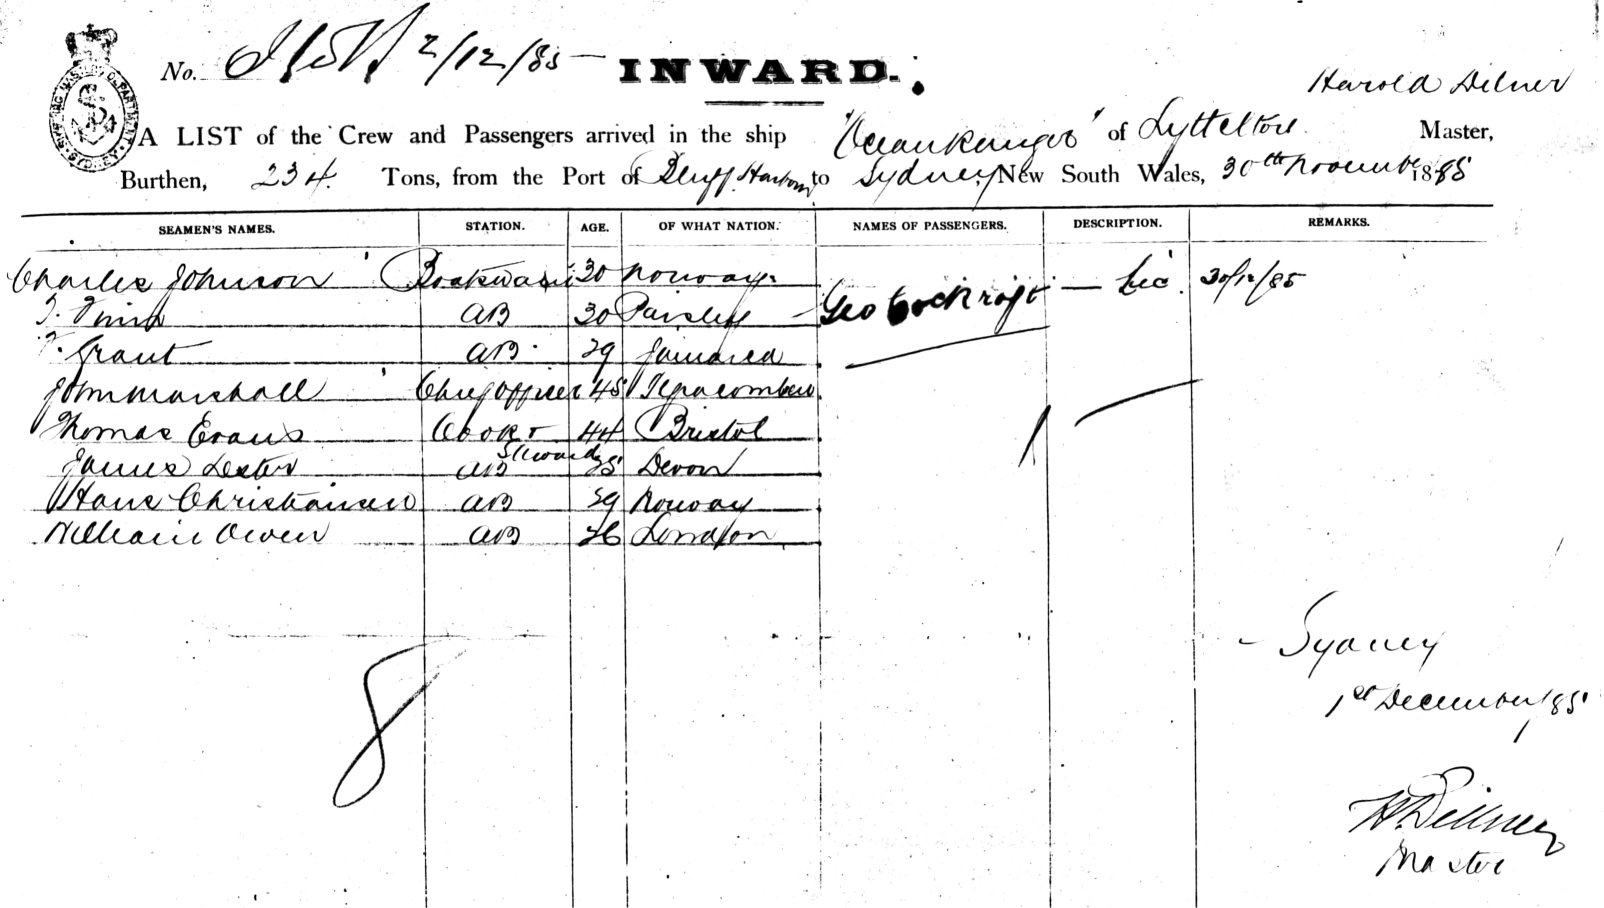 No. 2/12/85 INWARD.
Harold Dilner
A LIST of the Crew and Passengers arrived in the ship "Ocean Ranger" of Lyttelton Master,
Burthen, 234. Tons, from the Port of Bluff Harbour to Sydney, New South Wales, 30th November 1885
SEAMEN'S NAMES. STATION. AGE. OF WHAT NATION. NAMES OF PASSENGERS. DESCRIPTION. REMARKS.
Charles Johnson 30 Norway
AB 30 Paisley Geo Cockroft
Grant AB 29 Jamaica
John Marshall Chief Officer 45
Thomas Evans Cook & Steward 44 Bristol
James Lester AB 25 Devon
Hans Christiansen AB 29 Norway
William Owen AB 26 London
1
8
Sydney
1st December/85
H. Dillner
Master